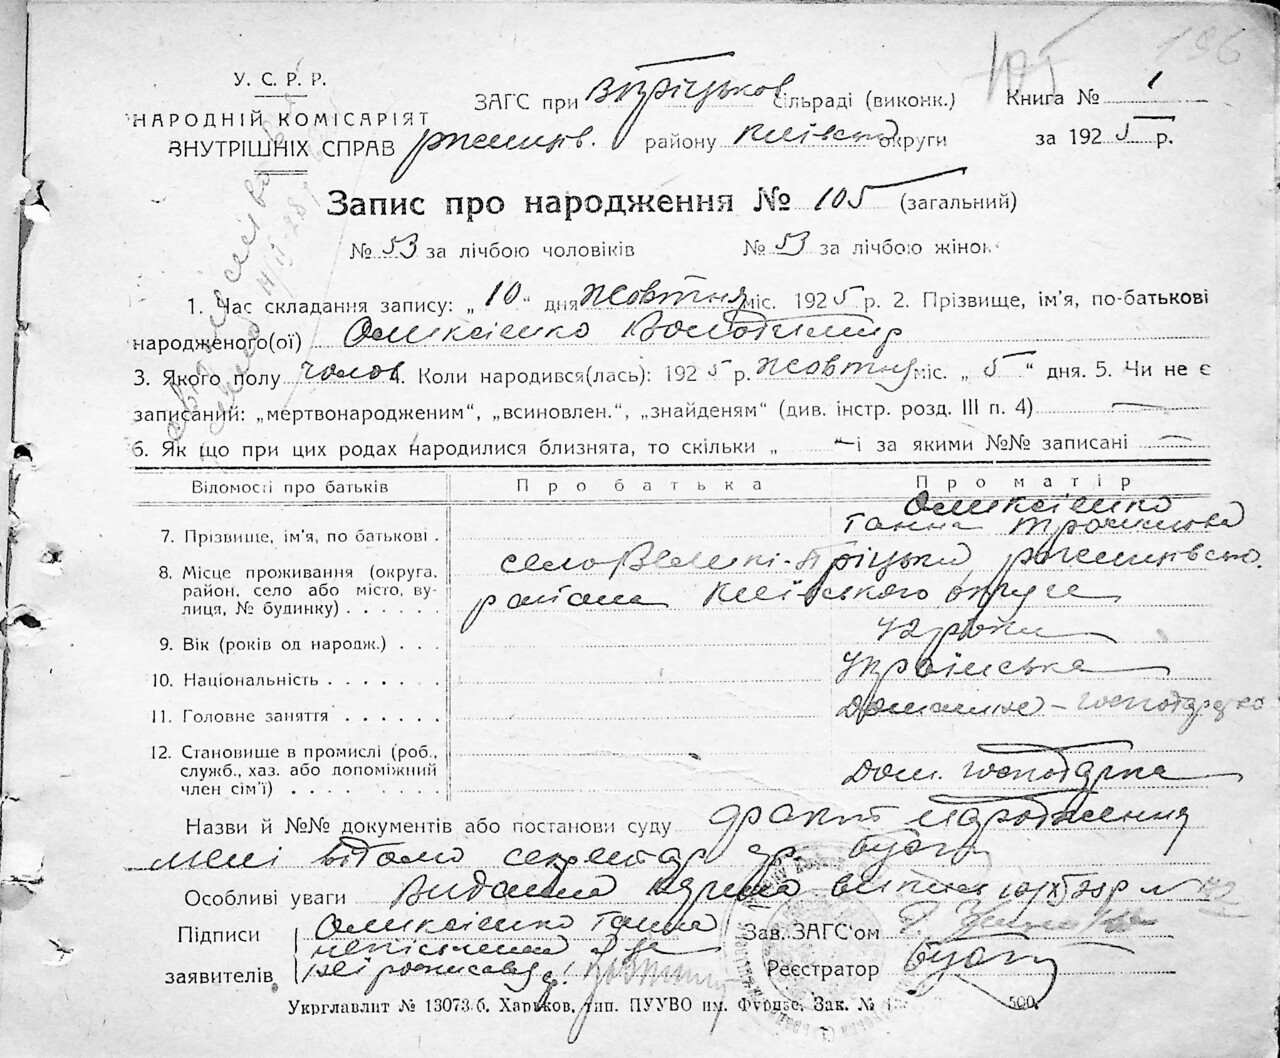 196
У. С. Р. Р.
НАРОДНІЙ КОМІСАРІЯТ
ВНУТРІШНІХ СПРАВ
ЗАГС при Втріцьков сільраді (виконк.) Книга № 1
ржищів. району Київсько округи за 1925 р.
Запис про народження № 105 (загальний)
№ 53 за лічбою чоловіків № 53 за лічбою жінок
1. Час складання запису: „10“ дня Жовтня міс. 1925 р. 2. Прізвище, ім'я, по-батькові
народженого(ої) Олексієнко Володимир
3. Якого полу чолов 4. Коли народився(лась): 1925 р. Жовтня міс. „5“ дня. 5. Чи не є
записаний: „мертвонародженим“, „всиновлен.“, „знайденям“ (див. інстр. розд. III п. 4) —
6. Як що при цих родах народилися близнята, то скільки „ — і за якими №№ записані —
Відомості про батьків Про батька Про матір
Олексієнко
7. Прізвище, ім'я, по батькові . Ганна Трохимовна
8. Місце проживання (округа, район, село або місто, вулиця, № будинку) . . . . . село Великі-Пріцьки ржищівсько.
району Київського округа
9. Вік (років од народж.) . . . роки
10. Національність . . . . . . Українська
11. Головне заняття . . . . . . Домашнє-господарство
12. Становище в промислі (роб.,
служб., хаз. або допоміжний
член сім'ї) . . . . . . . . . Дом. господарка
Назви й №№ документів або постанови суду факт народження
мені відомо секретар
Особливі уваги Видана
Підписи Олексієнко Ганна Зав. ЗАГС'ом
неписьменна
заявителів розписавсь Реєстратор
Укрглавліт № 13073/б. Харьков, тип. ПУУВО им. Фрунзе. Зак. №